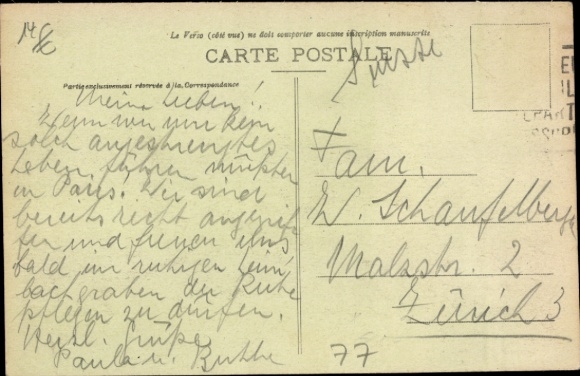 Le Verso (côté vue) ne doit comporter aucune inscription manuscrite
CARTE POSTALE
Suisse
Partie exclusivement réservée à la Correspondance
Meine Lieben!!
Wenn wir nur kein
solch angestrengtes
Leben führen müssten
in Paris. Wir sind
bereits recht angegrif-
fen und freuen uns
bald im ruhigen
bachgraben der Ruhe
pflegen zu dürfen.
Herzl. Grüße
Paula u.
Fam.
W. Schaufelberger
Malzstr. 2
Zürich 3
77